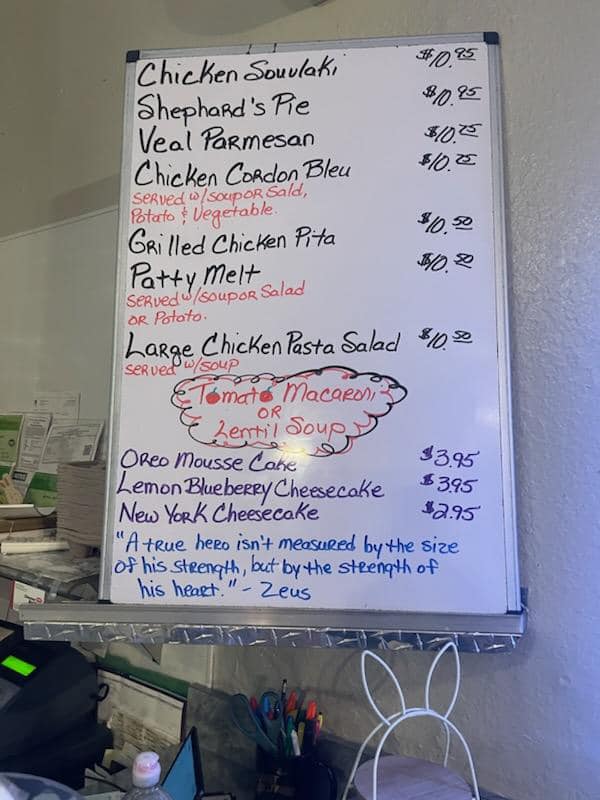 Chicken Souvlaki $10.95
Shephard's Pie $10.95
Veal Parmesan $10.75
Chicken Cordon Bleu $10.75
served w/soup or Sald,
Potato & Vegetable.
Grilled Chicken Pita $10.50
Patty Melt $10.50
served w/soup or Salad
or Potato.
Large Chicken Pasta Salad $10.50
served w/soup
Tomato Macaroni
OR
Lentil Soup
Oreo Mousse Cake $3.95
Lemon Blueberry Cheesecake $3.95
New York Cheesecake $2.95
"A true hero isn't measured by the size
of his strength, but by the strength of
his heart." - Zeus